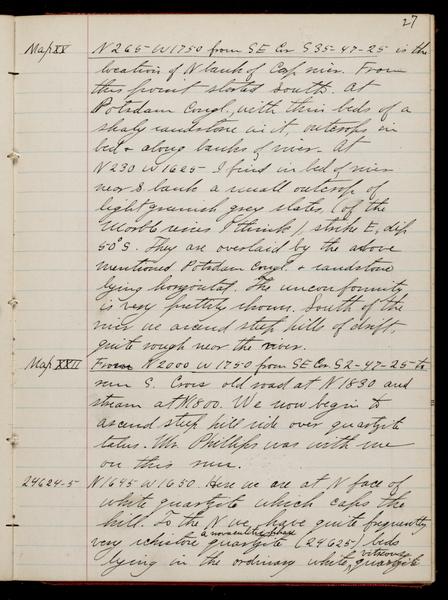 27
Map XV N265 W1750 from SE Cor S35-47-25 is the
location of N bank of Carp river. From
this point started south. At
Potsdam Congl., with thin beds of a
shaly sandstone in it, outcrops in
bed & along banks of river. At
N230 W1625 I find in bed of river
near S bank a small outcrop of
light greenish grey slates, (of the
Marble series I think), strike E, dip
50° S. They are overlaid by the above
mentioned Potsdam Congl. & sandstone
lying horizontal. The unconformity
is very prettily shown. South of the
river we ascend steep hills of drift,
quite rough near the river.
Map XXII From N2000 W1750 from SE Cor. S2-47-25 to
run S. Cross old road at N1830 and
stream at N1800. We now begin to
ascend steep hill side over quartzite
talus. Mr. Phillips was with me
on this run.
24624-5 N1645 W1650. Here we are at N face of
white quartzite which caps the
hill. To the N we have quite frequently
very schistose quartzite (24625) beds
lying in the ordinary white, vitreous quartzite